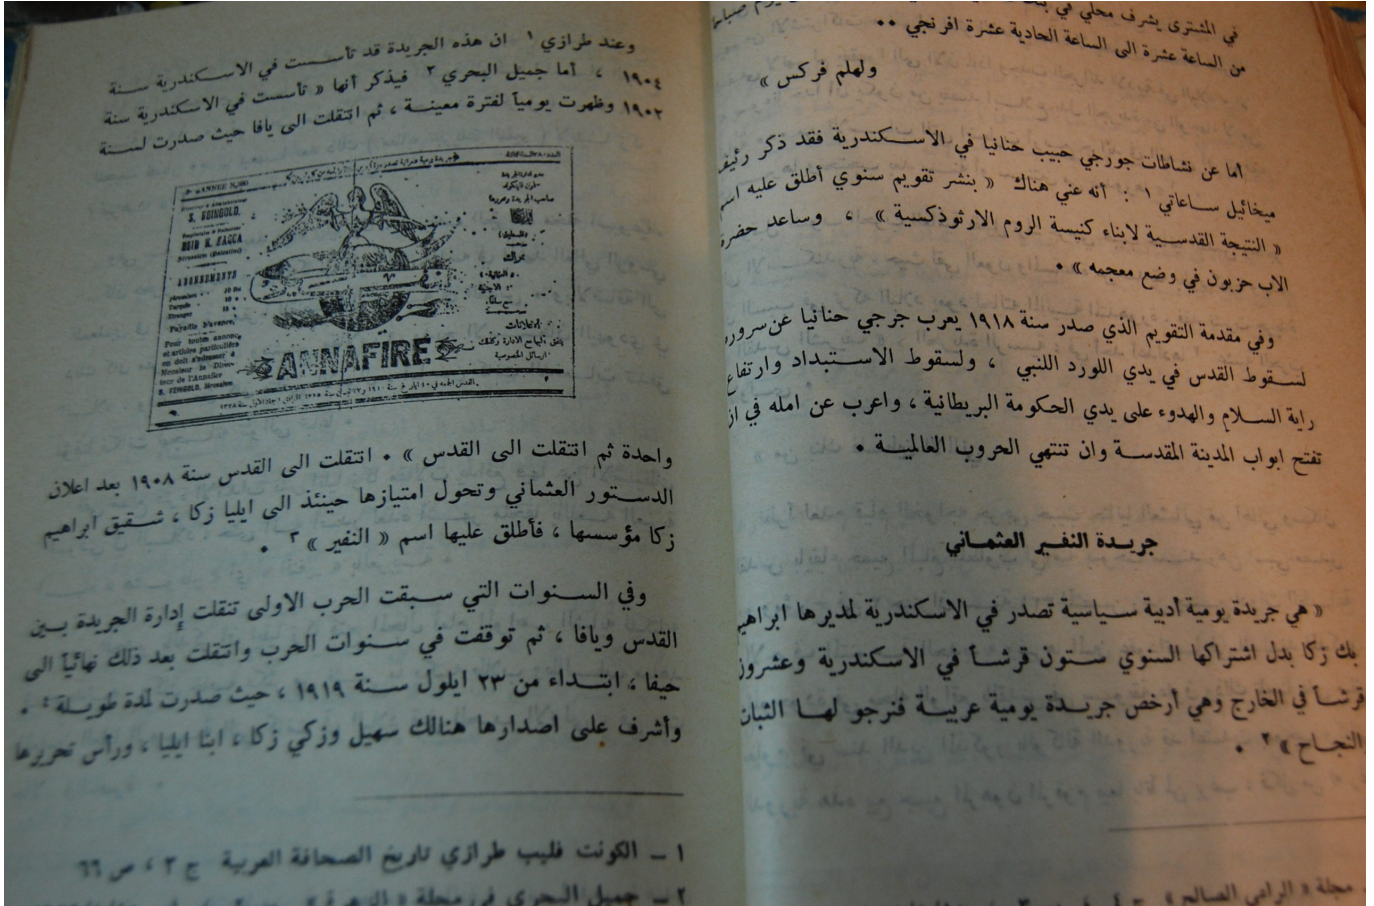 في المشترى يشرف محلي في
من الساعة عشرة الى الساعة الحادية عشرة افرنجي ••
ولهلم فركس »
أما عن نشاطات جورجي حبيب حنانيا في الاسكندرية فقد ذكر رئيف
ميخائيل ساعاتي ١ : أنه عني هناك « بنشر تقويم سنوي أطلق عليه اسم
« النتيجة القدسية لابناء كنيسة الروم الارثوذكسية » ، وساعد حضرة
الاب حزبون في وضع معجمه » •
وفي مقدمة التقويم الذي صدر سنة ١٩١٨ يعرب جرجي حنانيا عن سروره
لسقوط القدس في يدي اللورد اللنبي ، ولسقوط الاستبداد وارتفاع
راية السلام والهدوء على يدي الحكومة البريطانية ، واعرب عن امله في از
تفتح ابواب المدينة المقدسة وان تنتهي الحروب العالمية •
جريدة النفير العثماني
« هي جريدة يومية أدبية سياسية تصدر في الاسكندرية لمديرها ابراهيم
بك زكا بدل اشتراكها السنوي ستون قرشاً في الاسكندرية وعشرون
قرشاً في الخارج وهي أرخص جريدة يومية عربية فنرجو لها الثبات
والنجاح » ٢ •
مجلة « الراعي الصالح »
وعند طرازي ١ ان هذه الجريدة قد تأسست في الاسكندرية سنة
١٩٠٤ ، أما جميل البحري ٢ فيذكر أنها « تأسست في الاسكندرية سنة
١٩٠٢ وظهرت يومياً لفترة معينة ، ثم انتقلت الى يافا حيث صدرت لسنة
ANNEE
S. FEINGOLD.
Jérusalem (Palestine)
ABONNEMENTS
Payable d'avance,
Pour toutes annonces
et articles particuliers
on doit s'adresser à
Monsieur le Direc-
teur de l'Annafire
S. FEINGOLD, Jérusalem
ANNAFIRE
واحدة ثم انتقلت الى القدس » • انتقلت الى القدس سنة ١٩٠٨ بعد اعلان
الدستور العثماني وتحول امتيازها حينئذ الى ايليا زكا ، شقيق ابراهيم
زكا مؤسسها ، فأطلق عليها اسم « النفير » ٣ •
وفي السنوات التي سبقت الحرب الاولى تنقلت إدارة الجريدة بين
القدس ويافا ، ثم توقفت في سنوات الحرب وانتقلت بعد ذلك نهائياً الى
حيفا ، ابتداء من ٢٣ ايلول سنة ١٩١٩ ، حيث صدرت لمدة طويلة ٤ •
وأشرف على اصدارها هنالك سهيل وزكي زكا ، ابنا ايليا ، ورأس تحريرها
١ ــ الكونت فليب طرازي تاريخ الصحافة العربية ج ٣ ، ص ٦٦
٢ ــ جميل البحري في مجلة « الزهرة »